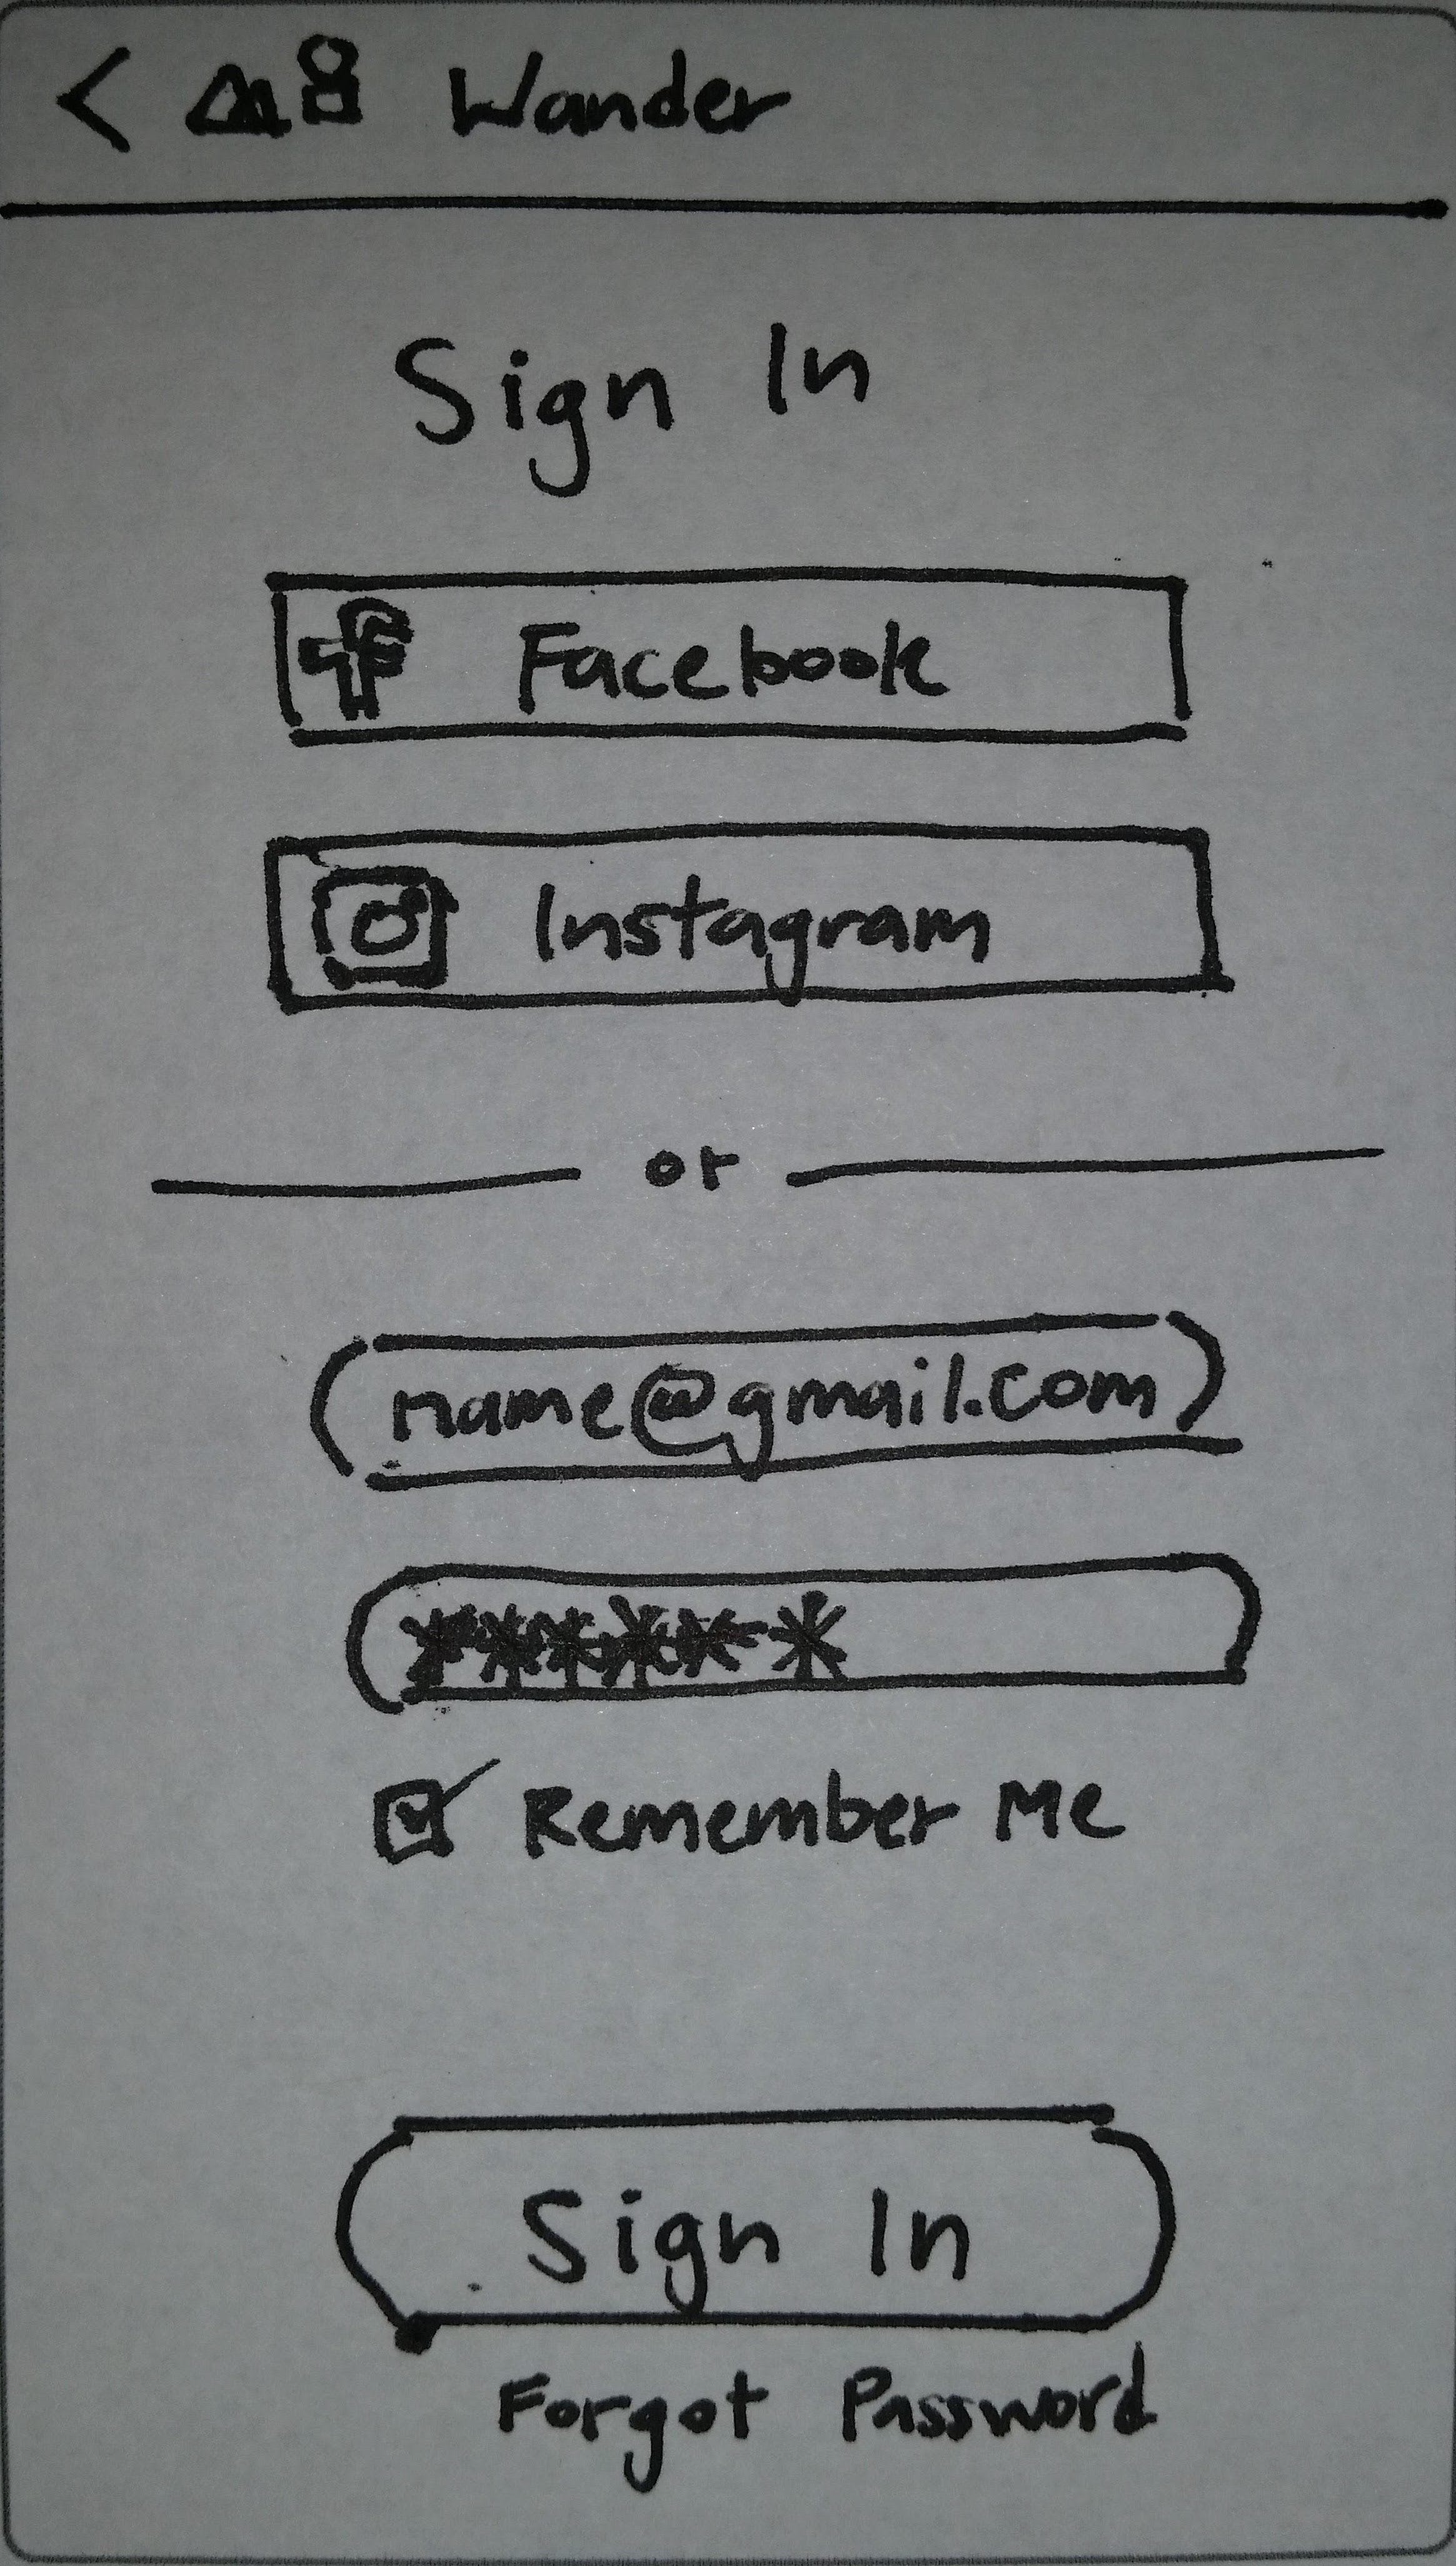 < Wander
Sign In
Facebook
Instagram
or
name@gmail.com
******
Remember Me
Sign In
Forgot Password